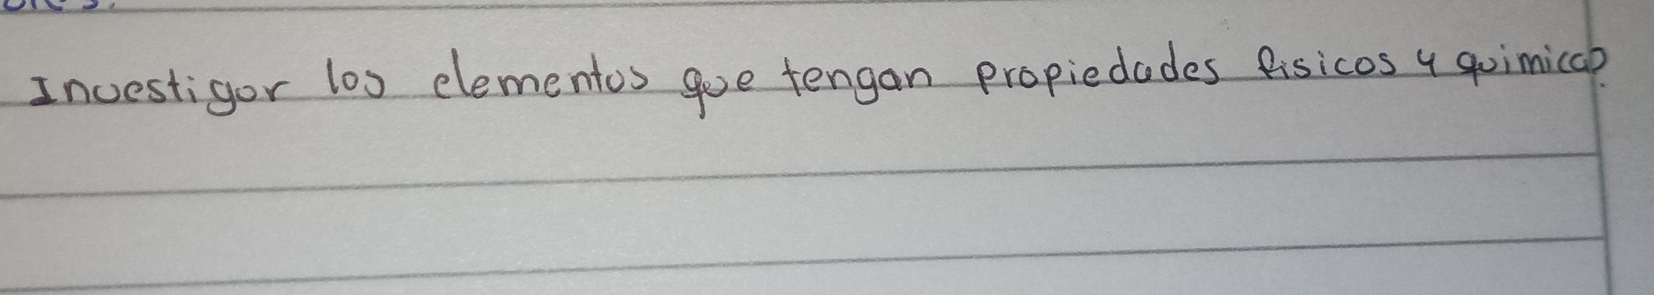 Investigar los elementos que tengan propiedades fisicos y quimicas.